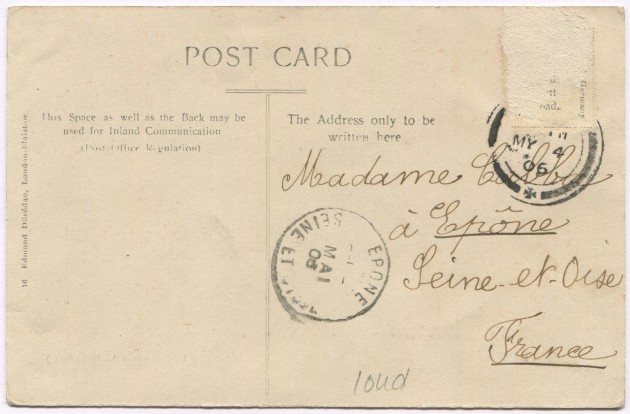 POST CARD
This Space as well as the Back may be
used for Inland Communication
(Post Office Regulation)
The Address only to be
written here
Madame
à Epône
Seine-et-Oise
France
MY 4
06
EPONE
SEINE ET
MAI
06
16 Edmund London-Plaistow.
Germany